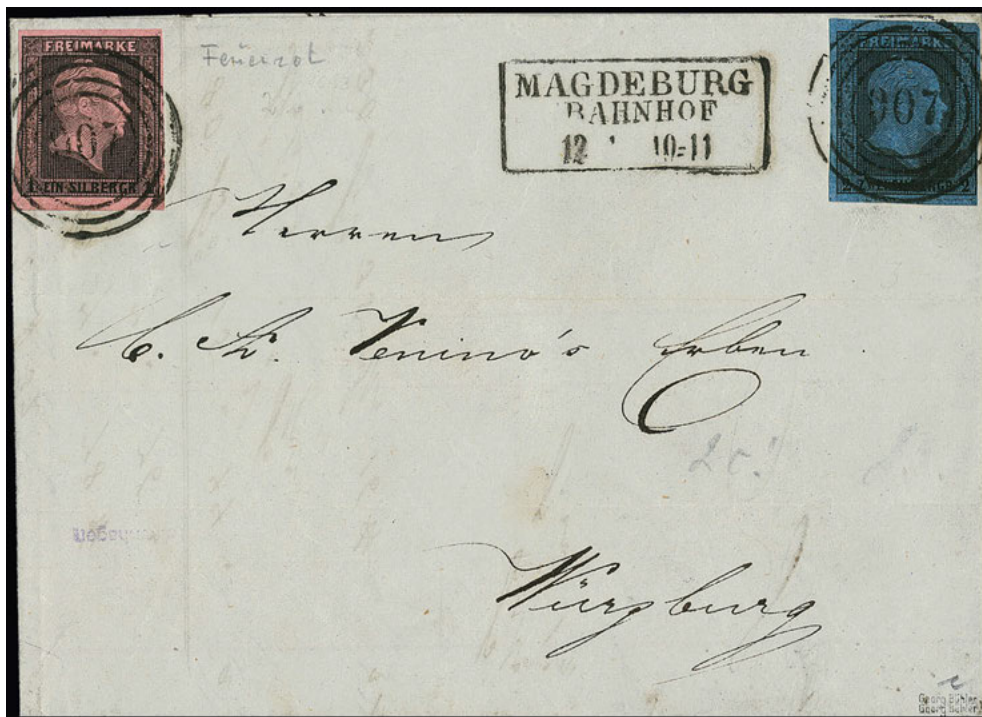 FREIMARKE
1 EIN SILBERGR. 1
Feuerrot
MAGDEBURG
BAHNHOF
12 1 10-11
FREIMARKE
907
2 ZWEI SILBERGR. 2
Herren
C. Fr. Venino's Erben
Würzburg
Georg Bühler
Georg Bühler